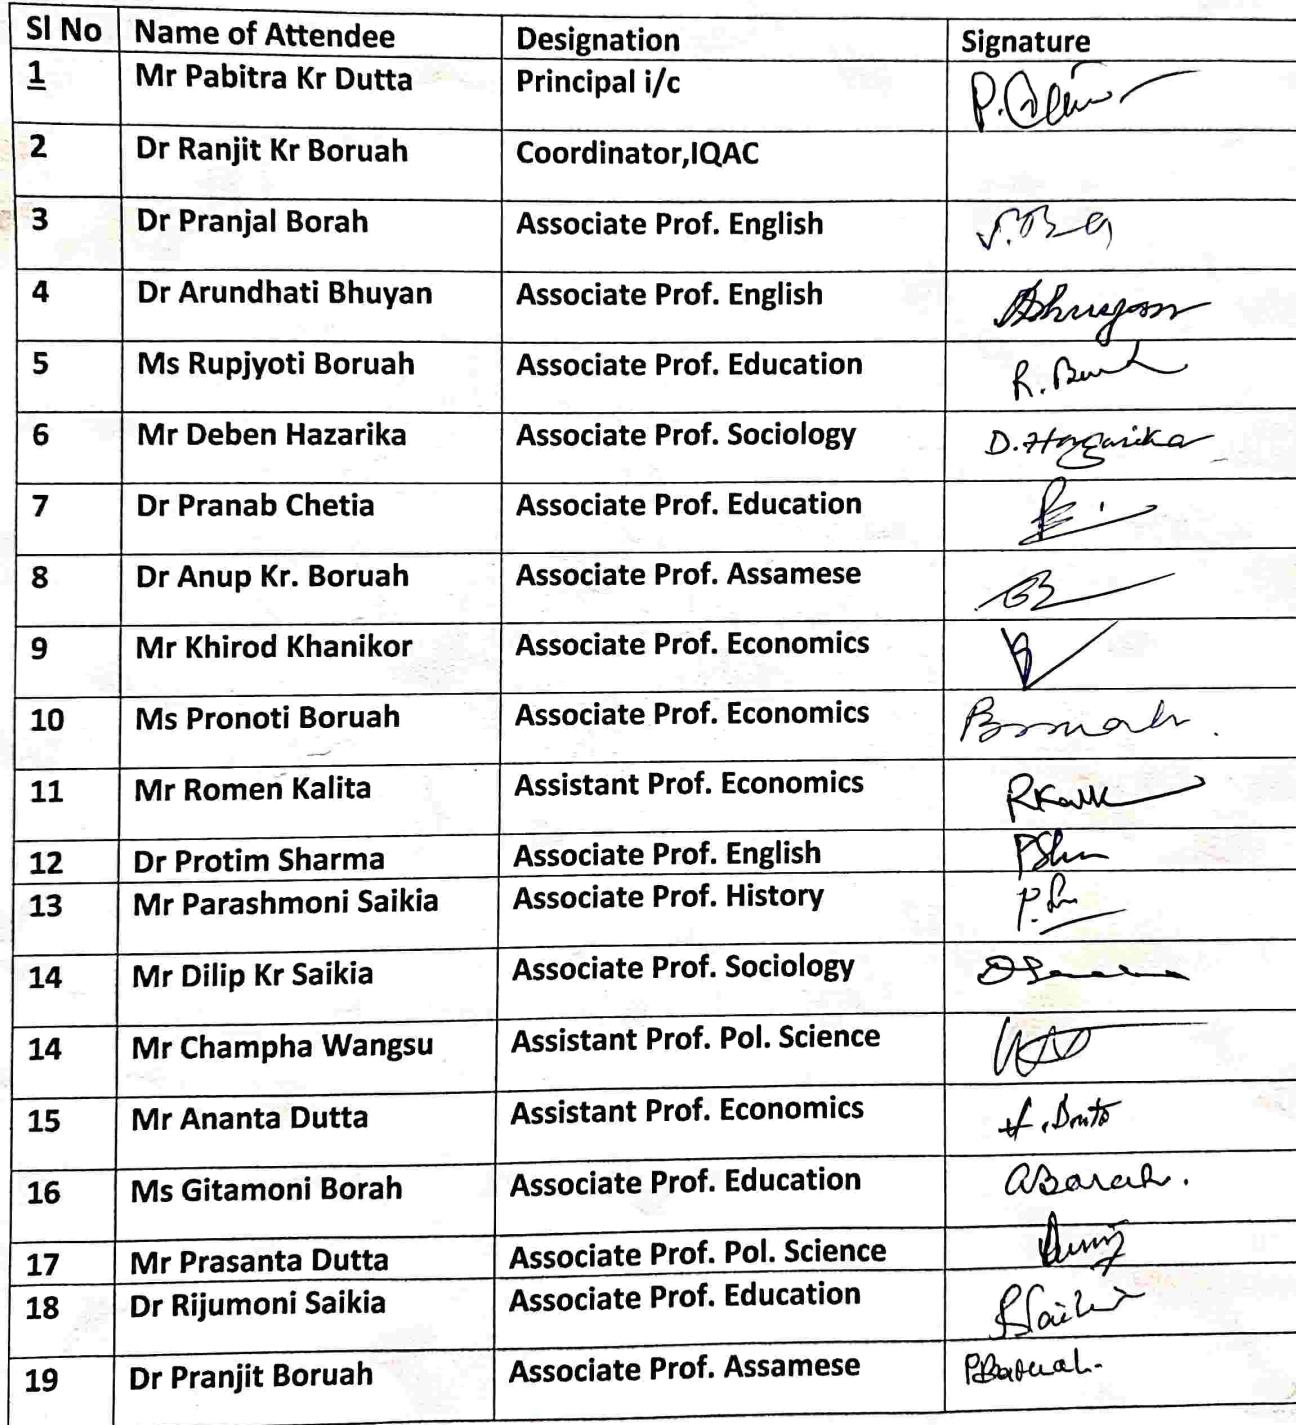 Sl No Name of Attendee Designation Signature
1 Mr Pabitra Kr Dutta Principal i/c
2 Dr Ranjit Kr Boruah Coordinator,IQAC
3 Dr Pranjal Borah Associate Prof. English
4 Dr Arundhati Bhuyan Associate Prof. English Bhuyan
5 Ms Rupjyoti Boruah Associate Prof. Education
6 Mr Deben Hazarika Associate Prof. Sociology D. Hazarika
7 Dr Pranab Chetia Associate Prof. Education
8 Dr Anup Kr. Boruah Associate Prof. Assamese
9 Mr Khirod Khanikor Associate Prof. Economics
10 Ms Pronoti Boruah Associate Prof. Economics
11 Mr Romen Kalita Assistant Prof. Economics
12 Dr Protim Sharma Associate Prof. English
13 Mr Parashmoni Saikia Associate Prof. History
14 Mr Dilip Kr Saikia Associate Prof. Sociology
14 Mr Champha Wangsu Assistant Prof. Pol. Science
15 Mr Ananta Dutta Assistant Prof. Economics
16 Ms Gitamoni Borah Associate Prof. Education
17 Mr Prasanta Dutta Associate Prof. Pol. Science
18 Dr Rijumoni Saikia Associate Prof. Education
19 Dr Pranjit Boruah Associate Prof. Assamese